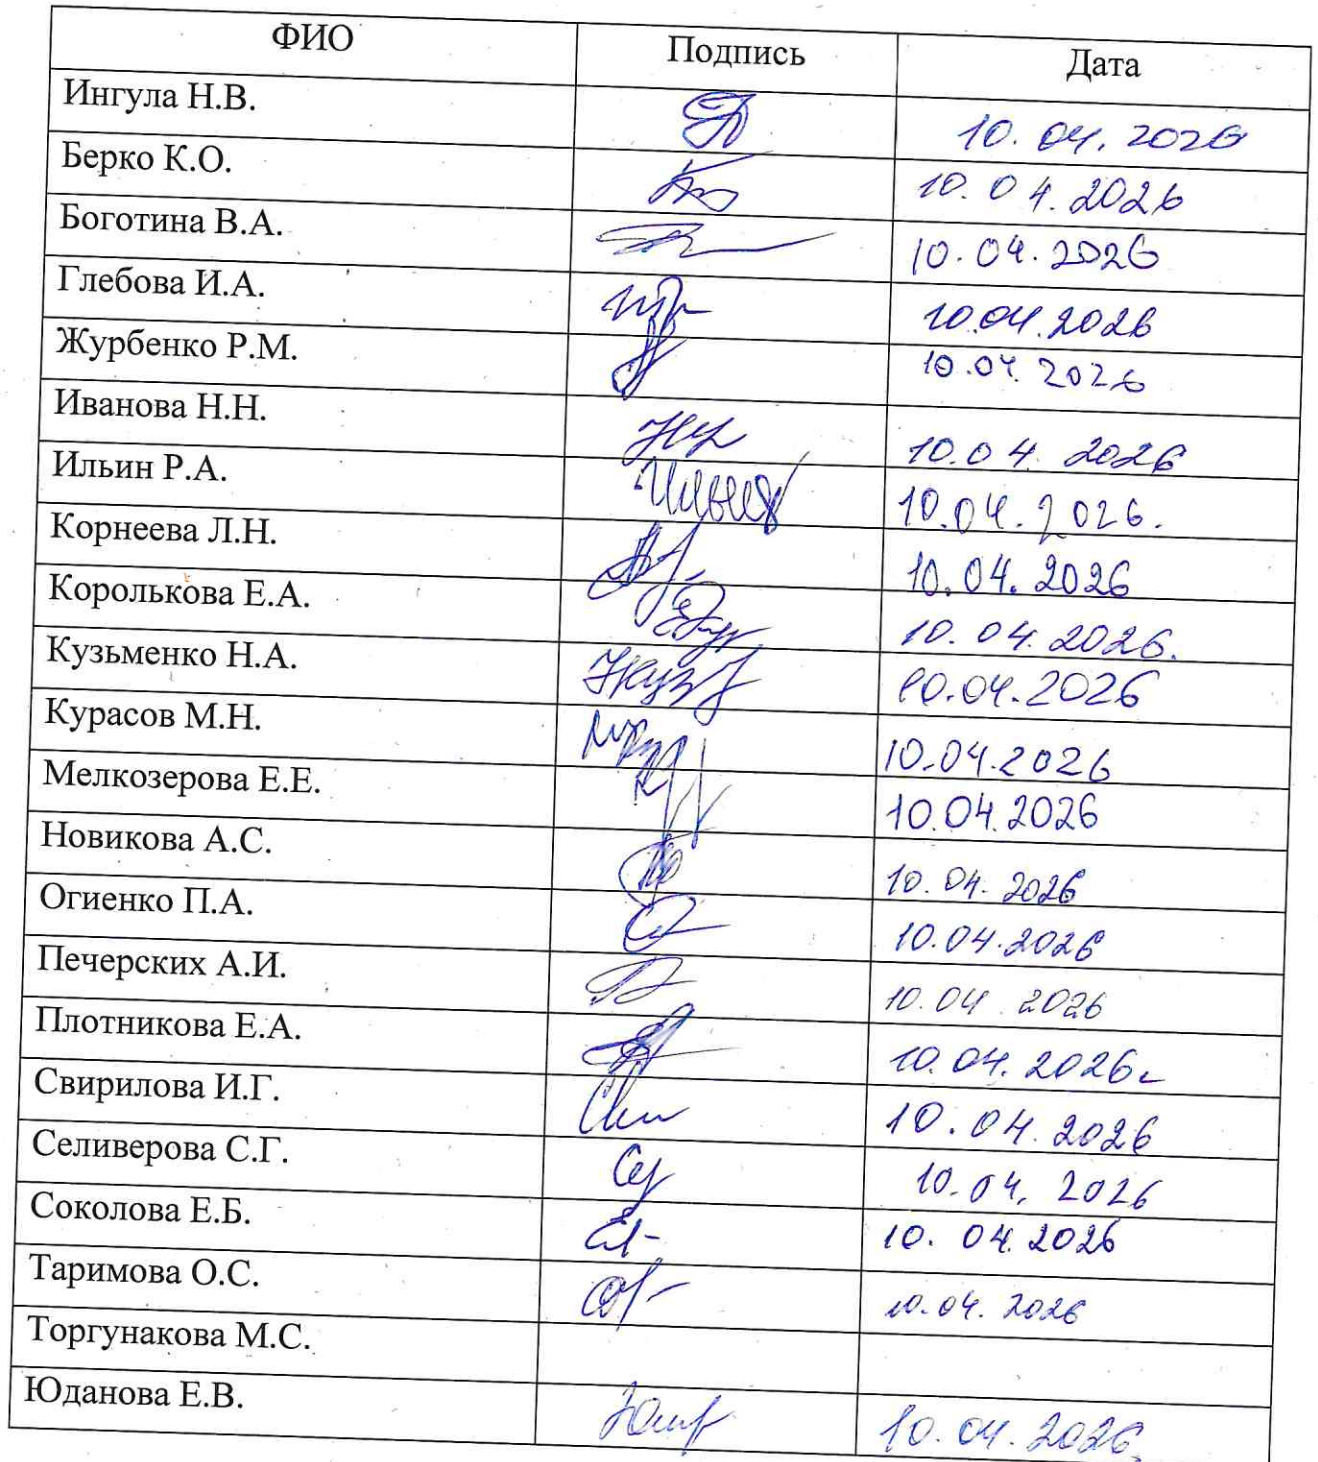 ФИО Подпись Дата
Ингула Н.В. 10.04.2026
Берко К.О. 10.04.2026
Боготина В.А. 10.04.2026
Глебова И.А. 10.04.2026
Журбенко Р.М. 10.04.2026
Иванова Н.Н. 10.04.2026
Ильин Р.А. 10.04.2026.
Корнеева Л.Н. 10.04.2026
Королькова Е.А. 10.04.2026.
Кузьменко Н.А. 10.04.2026
Курасов М.Н. 10.04.2026
Мелкозерова Е.Е. 10.04.2026
Новикова А.С. 10.04.2026
Огиенко П.А. 10.04.2026
Печерских А.И. 10.04.2026
Плотникова Е.А. 10.04.2026г
Свирилова И.Г. 10.04.2026
Селиверова С.Г. 10.04.2026
Соколова Е.Б. 10.04.2026
Таримова О.С. 10.04.2026
Торгунакова М.С.
Юданова Е.В. 10.04.2026.